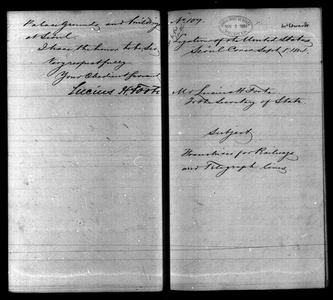 Palace Grounds, and buildings
at Seoul.
I have the honor to be, Sir,
Very respectfully
Your Obedient Servant
Lucius H. Foote
No. 107.
Legation of the United States
Seoul Corea, Sept.
Mr. Lucius H. Foote
To the Secretary of State.
Subject
Franchises for Railways
and Telegraph lines.